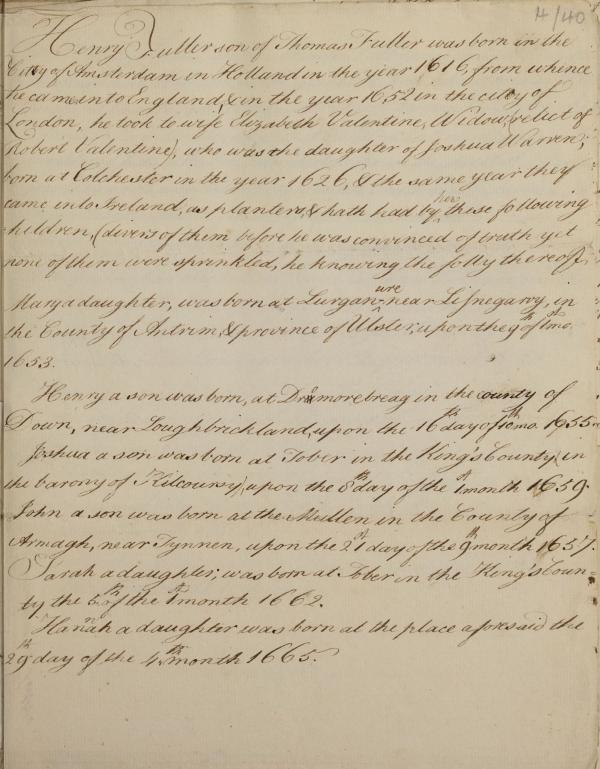 4/40
Henry Fuller son of Thomas Fuller was born in the
Citty of Amsterdam in Holland in the year 1616, from whence
he came into England, & in the year 1652 in the city of
London, he took to wife Elizabeth Valentine, Widow, (relict of
Robert Valentine), who was the daughter of Joshua Warren,
born at Colchester in the year 1626, & the same year they
came into Ireland, as planters, & hath had by her these following
children, (divers of them before he was convinced of truth yet
none of them were sprinkled, he knowing the folly thereof.
Mary a daughter, was born at Lurgan-ure near Lisnegarvy, in
the County of Antrim, & province of Ulster, upon the 9th of 1st mo.
1653.
Henry a son was born, at Dromorebreag in the county of
Down, near Loughbrickland, upon the 16th day of 10th mo. 1655
Joshua a son was born at Tober in the King's County, (in
the barony of Kilcoursy) upon the 8th day of the 1st month 1659.
John a son was born at the Mullen in the County of
Armagh, near Tynnen, upon the 21st day of the 9th month 1657.
Sarah a daughter, was born at Tober in the King's Coun-
ty the 5th of the 1st month 1662.
Hannah a daughter was born at the place aforesaid the
29th day of the 4th month 1665.